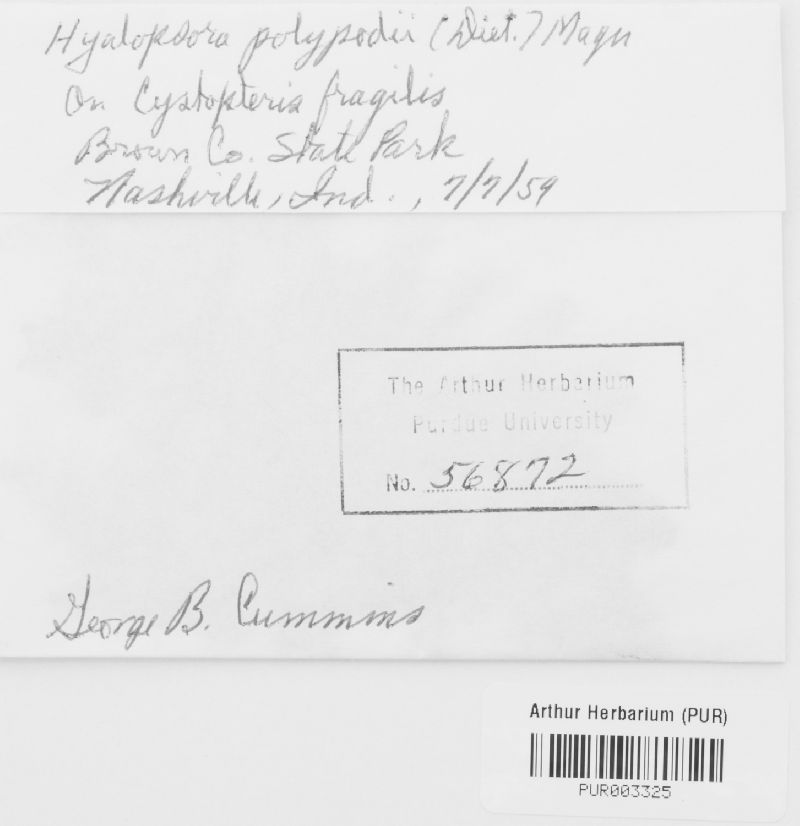 Hyalopsora polypodii (Diet.) Magn
On Cystopteris fragilis
Brown Co. State Park
Nashville, Ind., 7/7/59
The Arthur Herbarium
Purdue University
No. 56872
George B. Cummins
Arthur Herbarium (PUR)
PUR003325